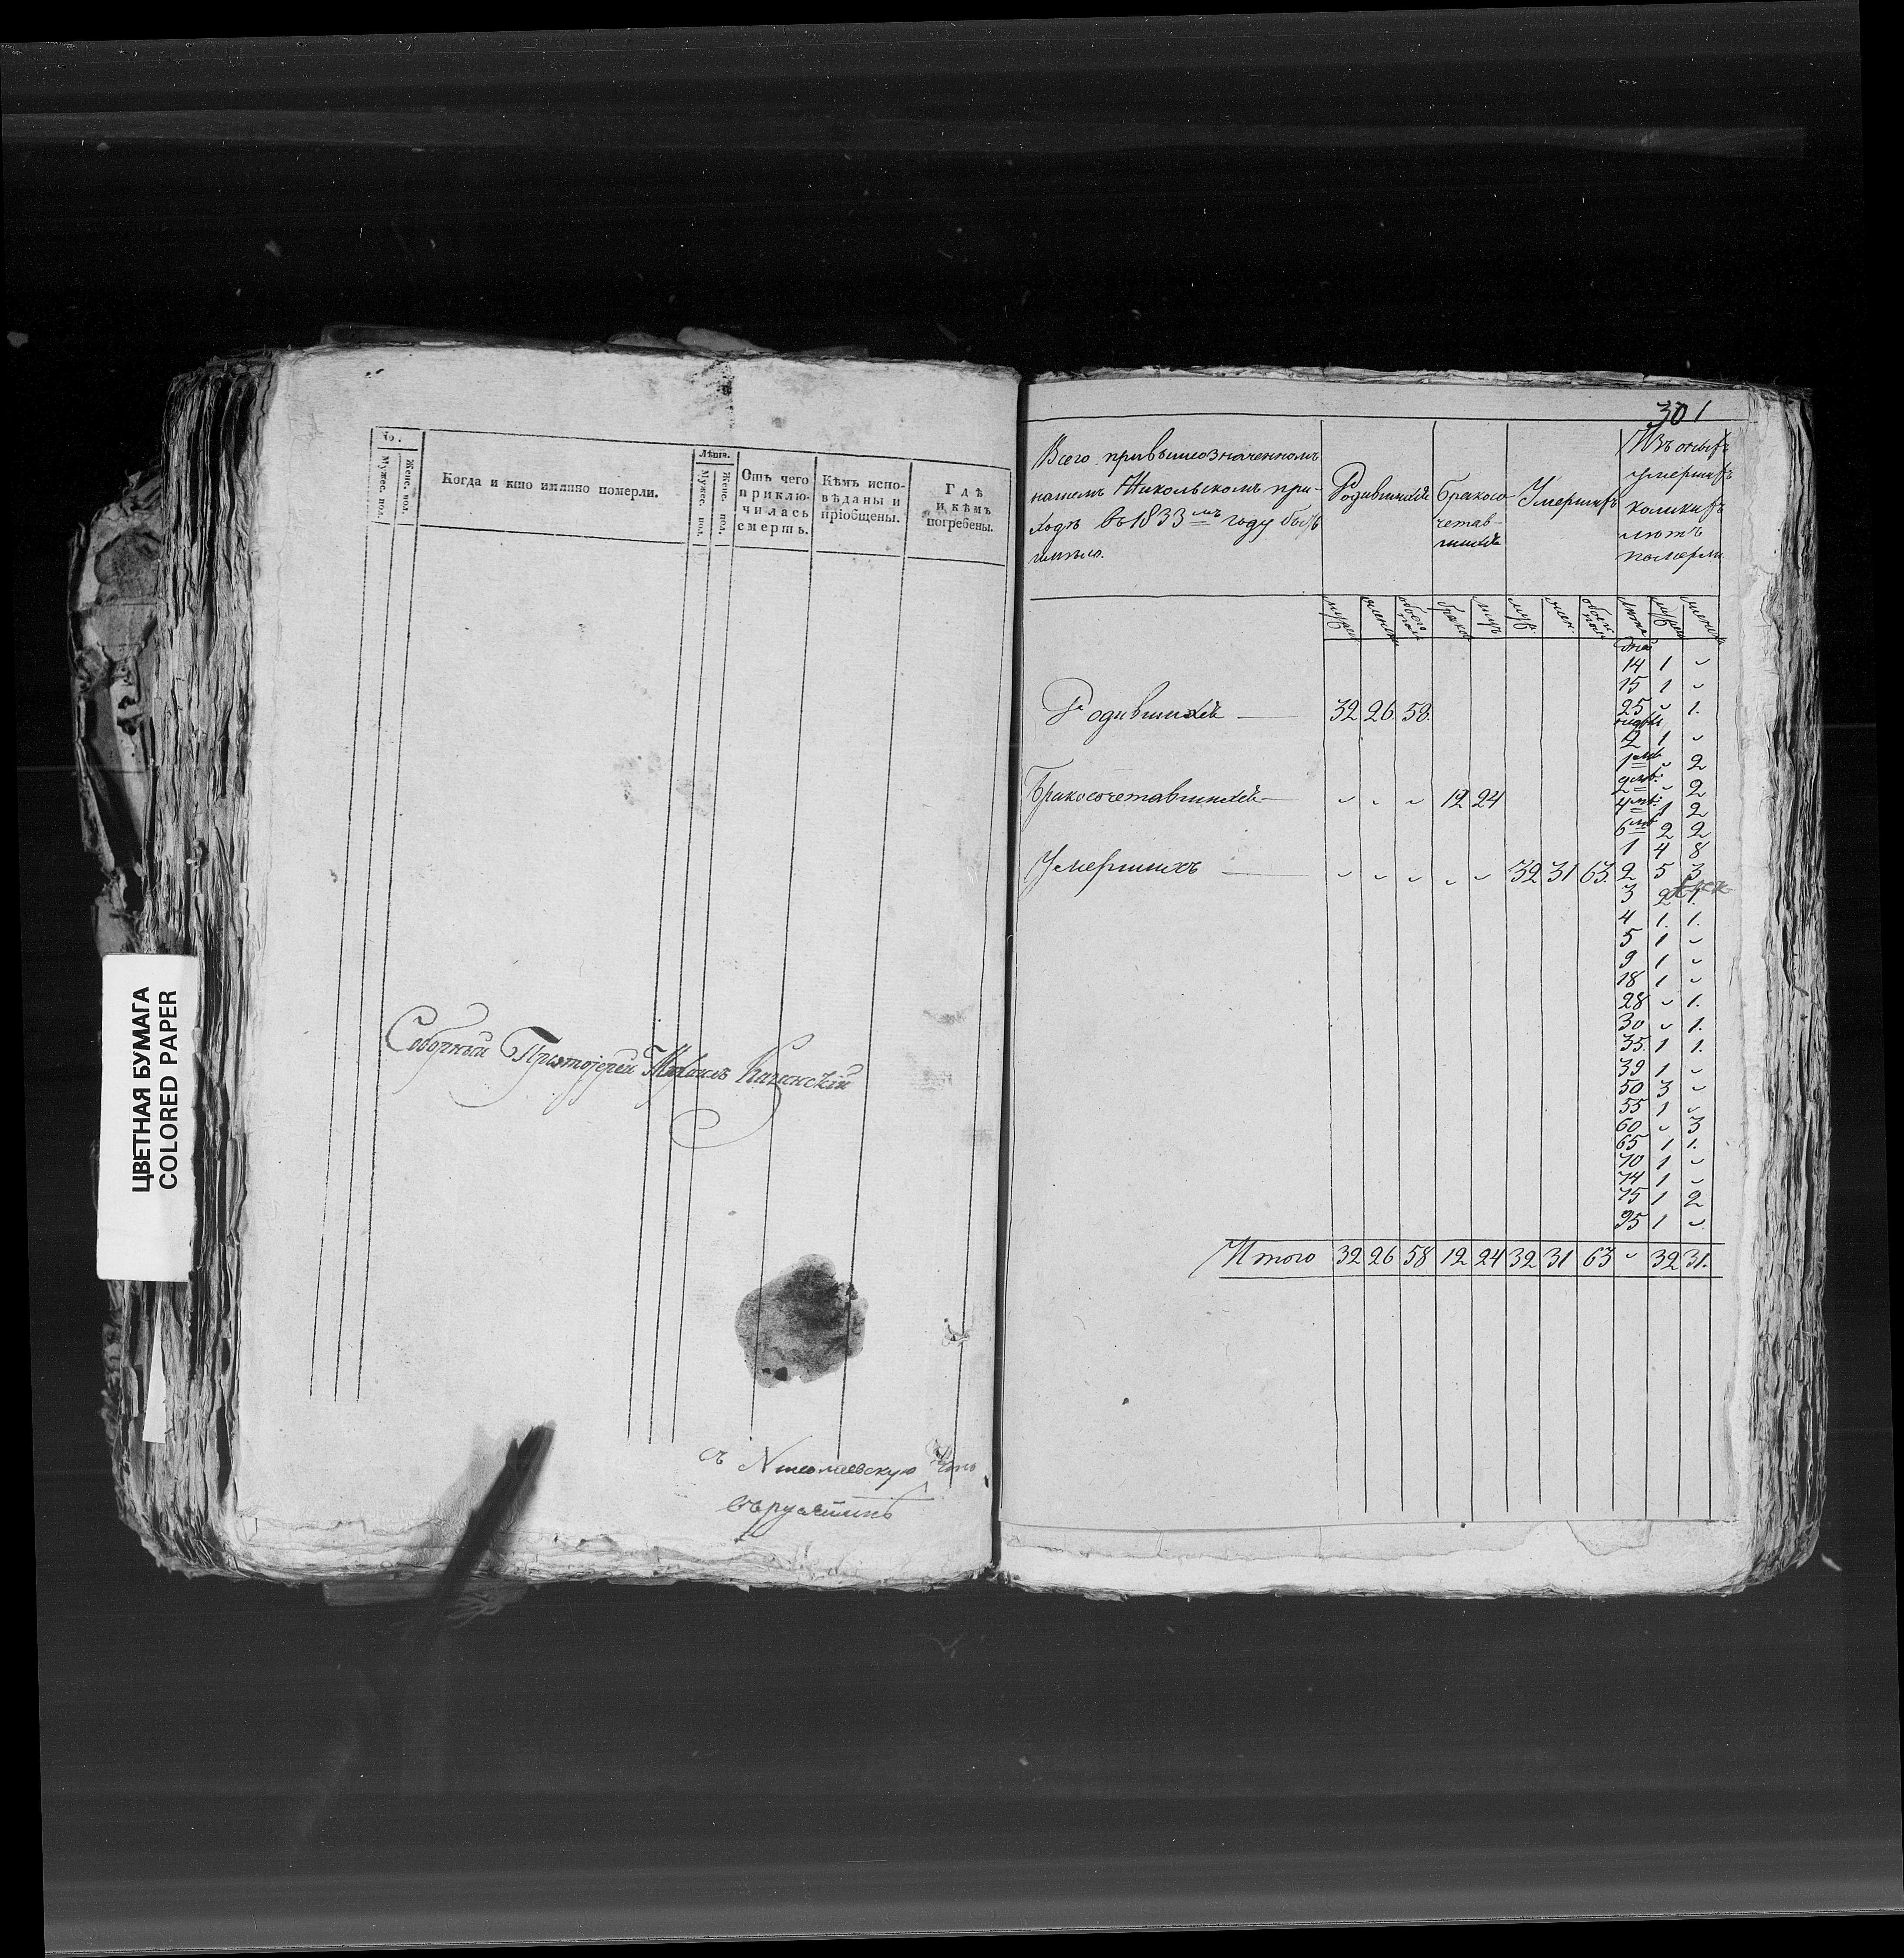 ЦВЕТНАЯ БУМАГА
COLORED PAPER
№.
Мужес. пол.
Женс. пол.
Когда и кто имянно померли.
Лѣта.
Мужес. пол.
Женс. пол.
Отъ чего
приклю-
чилась
смерть.
Кѣмъ испо-
вѣданы и
пріобщены.
Гдѣ
и кѣмъ
погребены.
Соборный Протоіерей Михаилъ
съ Николаевскую
301
Всего при вышеозначенномъ
нашемъ Никольскомъ при-
ходѣ въ 1833мъ году бы
Родившихся
Бракосо-
четав-
шихся
Умершихъ
Изъ оныхъ
умершихъ
коликихъ
лѣтъ
померли
муж
женск
обоего пол
браковъ
муж.
жен.
обоего пол
лѣта
муж
женск
дней
14 1 ̆
15 1 ̆
Родившихся 32 26 58.
25 ̆ 1.
недѣль
2 1 ̆
1 мѣ ̆ 2
2 ̆ 2
Бракосочетавшихся ̆ ̆ ̆ 12 24
4 мѣ 1 2
6 мѣ 2 2
1 4 8
Умершихъ ̆ ̆ ̆ ̆ ̆ 32 31 63. 2 5 3
3 2 1.
4 1. 1.
5 1 ̆
9 1 ̆
18 1 ̆
28 ̆ 1.
30 ̆ 1.
35. 1 1.
39 1 ̆
50 3 ̆
55 1 ̆
60 ̆ 3
65 1 1.
70 1 ̆
74 1 ̆
75 1 2
95 1 ̆
Итого 32 26 58 12 24 32 31 63 ̆ 32 31.